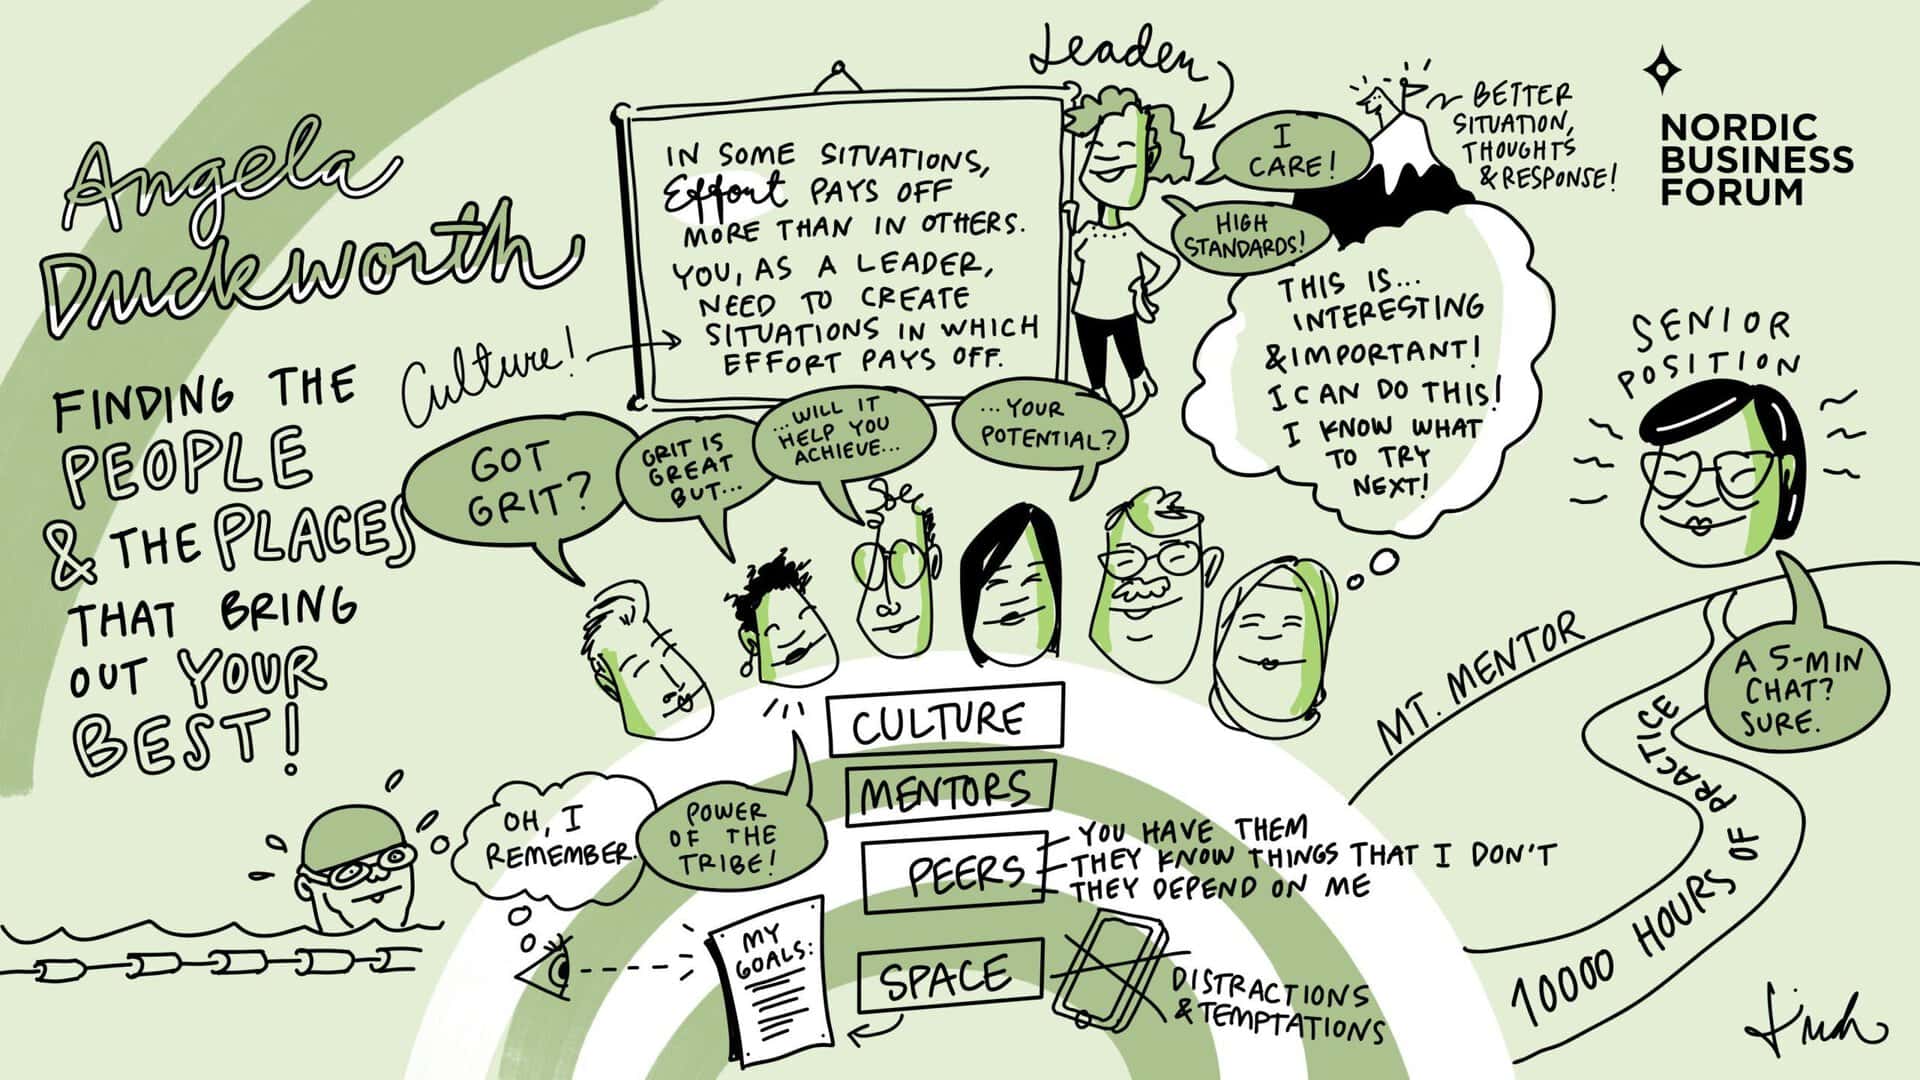 Angela
Duckworth
FINDING THE
PEOPLE
& THE PLACES
THAT BRING
OUT YOUR
BEST!
Culture!
IN SOME SITUATIONS,
Effort PAYS OFF
MORE THAN IN OTHERS.
YOU, AS A LEADER,
NEED TO CREATE
SITUATIONS IN WHICH
EFFORT PAYS OFF.
Leader
I
CARE!
HIGH
STANDARDS!
BETTER
SITUATION,
THOUGHTS
& RESPONSE!
NORDIC
BUSINESS
FORUM
THIS IS...
INTERESTING
& IMPORTANT!
I CAN DO THIS!
I KNOW WHAT
TO TRY
NEXT!
SENIOR
POSITION
GOT
GRIT?
GRIT IS
GREAT
BUT...
...WILL IT
HELP YOU
ACHIEVE...
...YOUR
POTENTIAL?
A 5-MIN
CHAT?
SURE.
MT. MENTOR
10000 HOURS OF PRACTICE
CULTURE
MENTORS
PEERS
YOU HAVE THEM
THEY KNOW THINGS THAT I DON'T
THEY DEPEND ON ME
SPACE
DISTRACTIONS
& TEMPTATIONS
OH, I
REMEMBER.
POWER
OF THE
TRIBE!
MY
GOALS: